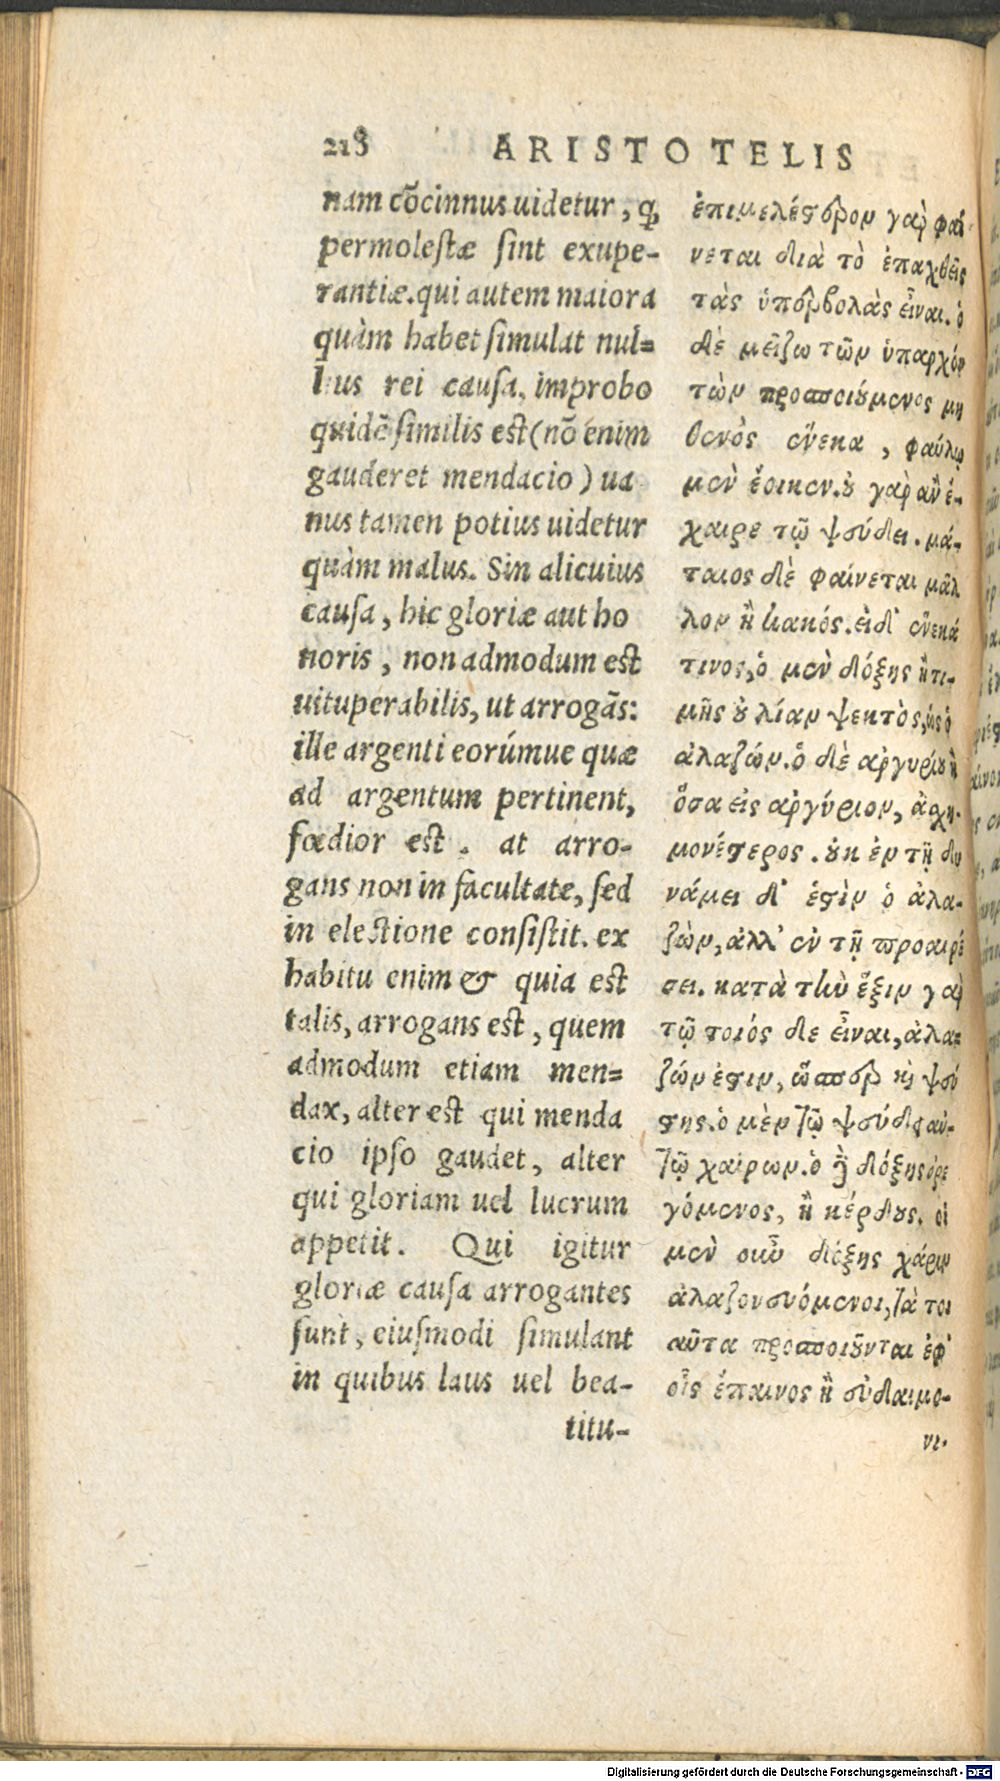 218 ARISTOTELIS
nam cõcinnus uidetur, q̧
permolestæ sint exupe-
rantiæ. qui autem maiora
quàm habet simulat nul=
lius rei causa, improbo
quidẽ similis est (nõ enim
gauderet mendacio) ua
nus tamen potius uidetur
quàm malus. Sin alicuius
causa, hic gloriæ aut ho
noris, non admodum est
uituperabilis, ut arrogãs:
ille argenti eorúmue quæ
ad argentum pertinent,
fœdior est. at arro-
gans non in facultate, sed
in electione consistit. ex
habitu enim & quia est
talis, arrogans est, quem
admodum etiam men=
dax, alter est qui menda
cio ipso gaudet, alter
qui gloriam uel lucrum
appetit. Qui igitur
gloriæ causa arrogantes
sunt, eiusmodi simulant
in quibus laus uel bea-
titu-
ἐπιμελέστερον γὰρ φαί-
νεται διὰ τὸ ἐπαχθεῖς
τὰς ὑπερβολὰς εἶναι. ὁ
δὲ μείζω τῶν ὑπαρχόν
τὼν προσποιούμενος μη
θενὸς ἕνεκα, φαύλῳ
μὲν ἔοικεν. οὐ γὰρ ἂν ἔ-
χαιρε τῷ ψεύδει. μά-
ταιος δὲ φαίνεται μᾶλ
λον ἢ κακός. εἰ δ' ἕνεκά
τινος, ὁ μὲν δόξης ἢ τι-
μῆς οὐ λίαν ψεκτὸς, ὡς ὁ
ἀλαζών. ὁ δὲ ἀργυρίου ἢ
ὅσα εἰς ἀργύριον, ἀσχη-
μονέστερος. οὐκ ἐν τῇ δυ
νάμει δ' ἐστὶν ὁ ἀλα-
ζὼν, ἀλλ' ἐν τῇ προαιρέ
σει. κατὰ τὴν ἕξιν γὰρ
τῷ τοιόσδε εἶναι, ἀλα=
ζών ἐστιν, ὥσπερ καὶ ψεύ
στης. ὁ μὲν τῷ ψεύδει αὐ-
τῷ χαίρων. ὁ δὲ δόξης ὀρε
γόμενος, ἢ κέρδους. οἱ
μὲν οὖν δόξης χάριν
ἀλαζονευόμενοι, τὰ τοι
αῦτα προσποιοῦνται ἐφ'
οἷς ἔπαινος ἢ εὐδαιμο-
νι-
Digitalisierung gefördert durch die Deutsche Forschungsgemeinschaft - DFG